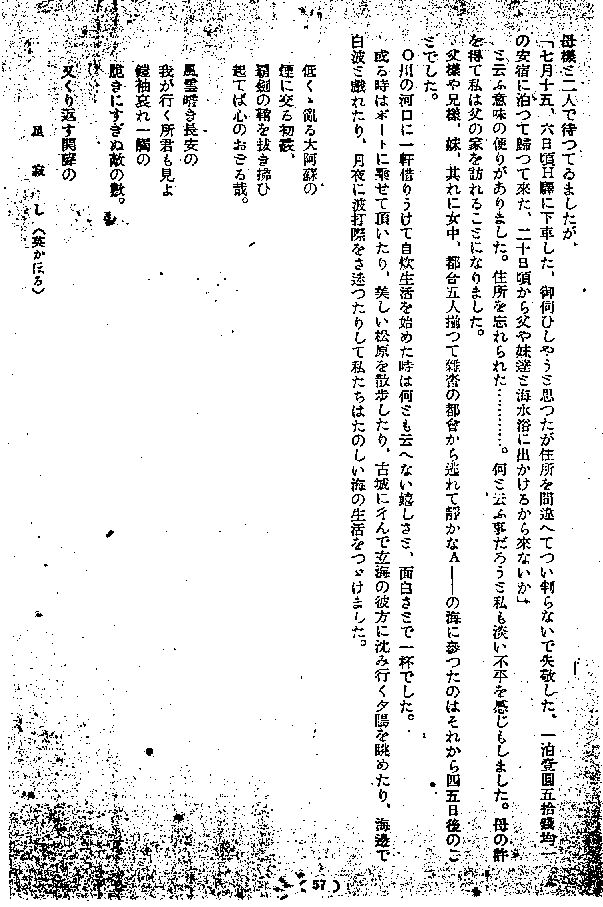 母樣と二人で待つてゐましたが、
「七月十五、六日頃H驛に下車した、御伺ひしやうと思つたが住所を間違へてつい判らないで失敬した、一泊壹圓五拾錢均一
の安宿に泊つて歸つて來た、二十日頃から父や妹達と海水浴に出かけるから來ないか」
と云ふ意味の便りがありました。住所を忘れられた…………。何と云ふ事だろうと私も淡い不平を感じもしました。母の許
を得て私は父の家を訪れることになりました。
父樣や兄樣、妹、其れに女中、都合五人揃つて雜沓の都會から逃れて靜かなA——の海に參つたのはそれから四五日後のこ
とでした。
O川の河口に一軒借りうけて自炊生活を始めた時は何とも云へない嬉しさと、面白さとで一杯でした。
或る時はボートに乘せて頂いたり、美しい松原を散步したり、古城に佇んで立海の彼方に沈み行く夕陽を眺めたり、海邊で
白波と戲れたり、月夜に波打際をさ迷つたりして私たちはたのしい海の生活をつゞけました。
低くゝ薫る大阿蘇の
煙に交る初戀、
覇劍の鞘を拔き拂ひ
起てば心のおごる哉。
風雲暗き長安の
我が行く所君も見よ
鎧袖哀れ一觸の
脆きにすぎぬ敵の數。
又くり返す開蘇の
寂し(英かほる)
( 57 )